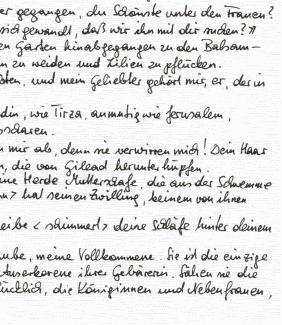 er gegangen, du Schönste unter den Frauen?
sich gewandt, daß wir ihn mit dir suchen? »
en Garten hinabgegangen zu den Balsam-
n zu weiden und Lilien zu pflücken.
ten, und mein Geliebter gehört mir, er, der in
din, wie Tirza, anmutig wie Jerusalem,
scharen.
n mir ab, denn sie verwirren mich! Dein Haar
n, die von Gilead herunterhüpfen.
ine Herde Mutterschafe, die aus der Schwemme
n> hat seinen Zwilling, keinem von ihnen
eibe < schimmert > deine Schläfe hinter deinem
ube, meine Vollkommene. Sie ist die einzige
Auserkorene ihrer Gebärerin. Sahen sie die
ücklich, die Königinnen und Nebenfrauen,